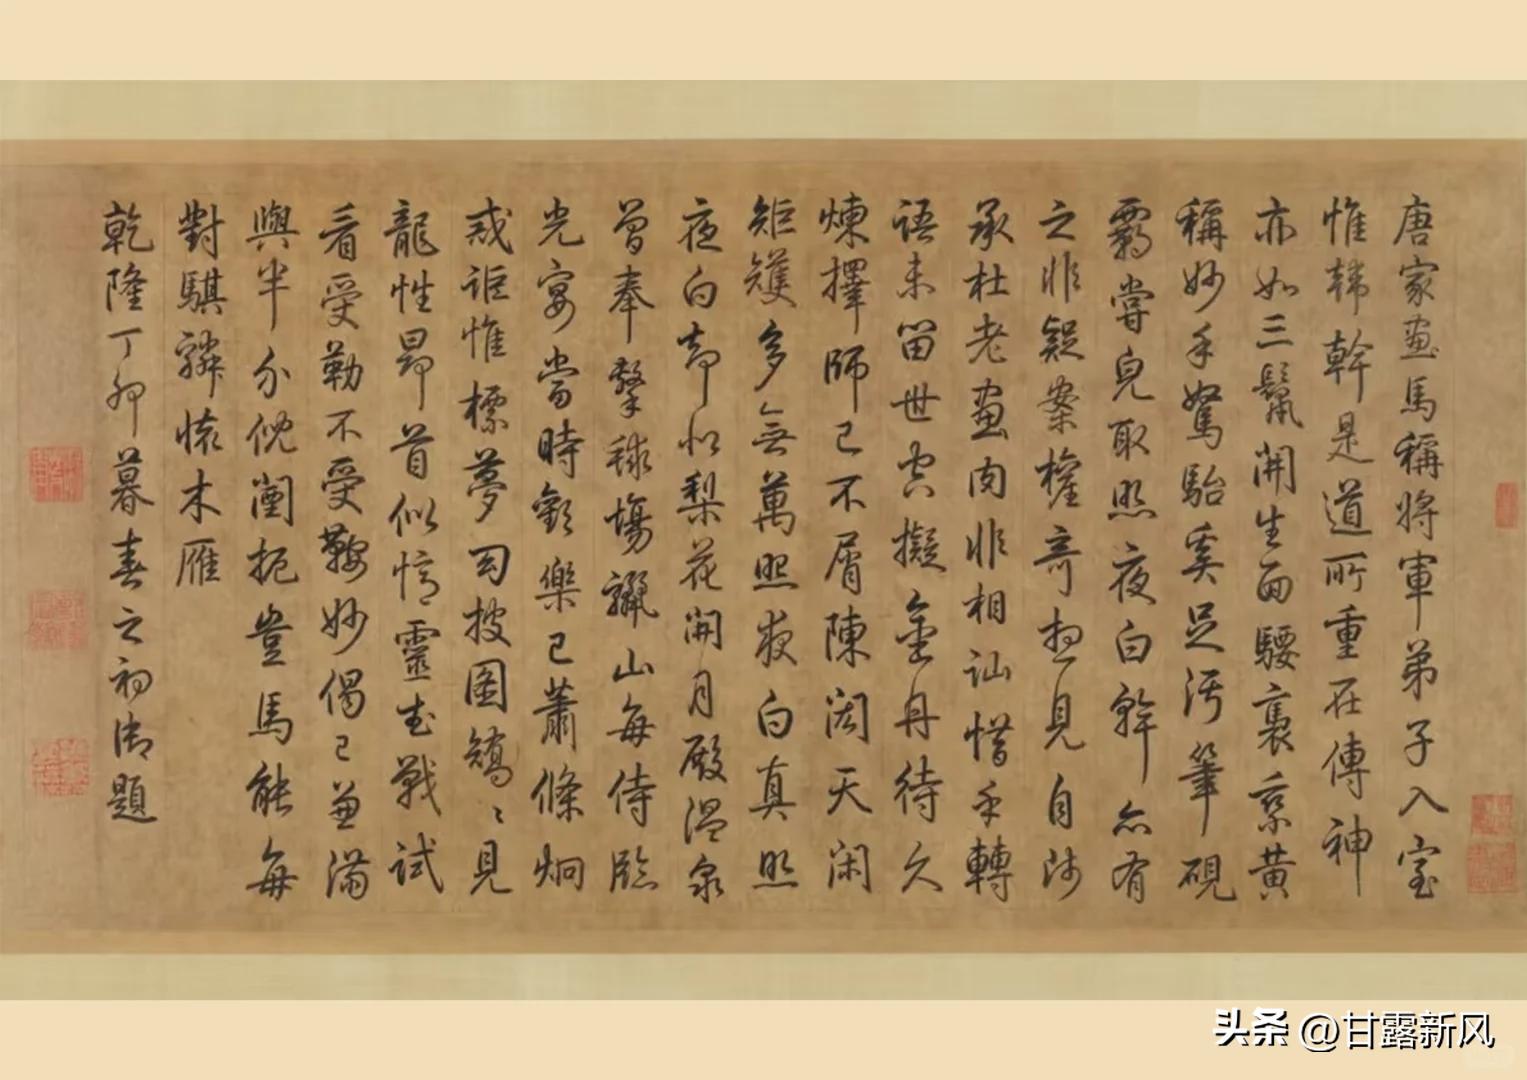 唐家畫馬稱將軍弟子入室
惟韓幹是道所重在傳神
亦如三鬣開生面騕褭乘黃
稱妙手駑駘奚足污筆硯
霸嘗皃取照夜白幹亦有
之非疑案權奇想見自
承杜老畫肉非相訕惜乎轉
語未留世空擬金丹待久
煉擇師已不屑陳閎天閑
矩矱多無萬照夜白真照
夜白却似梨花開月殿温泉
曾奉擊毬場驪山每侍臨
光宴當時歡樂已蕭條炯
戒詎惟標夢幻披圖矯〻見
龍性昂首似憶靈武戰試
看受勒不受鞍妙偈已兼滿
與半分俛闉扼豈馬能每
對騏驎懷木雁
乾隆丁卯暮春之初御題
头条 @甘露新风